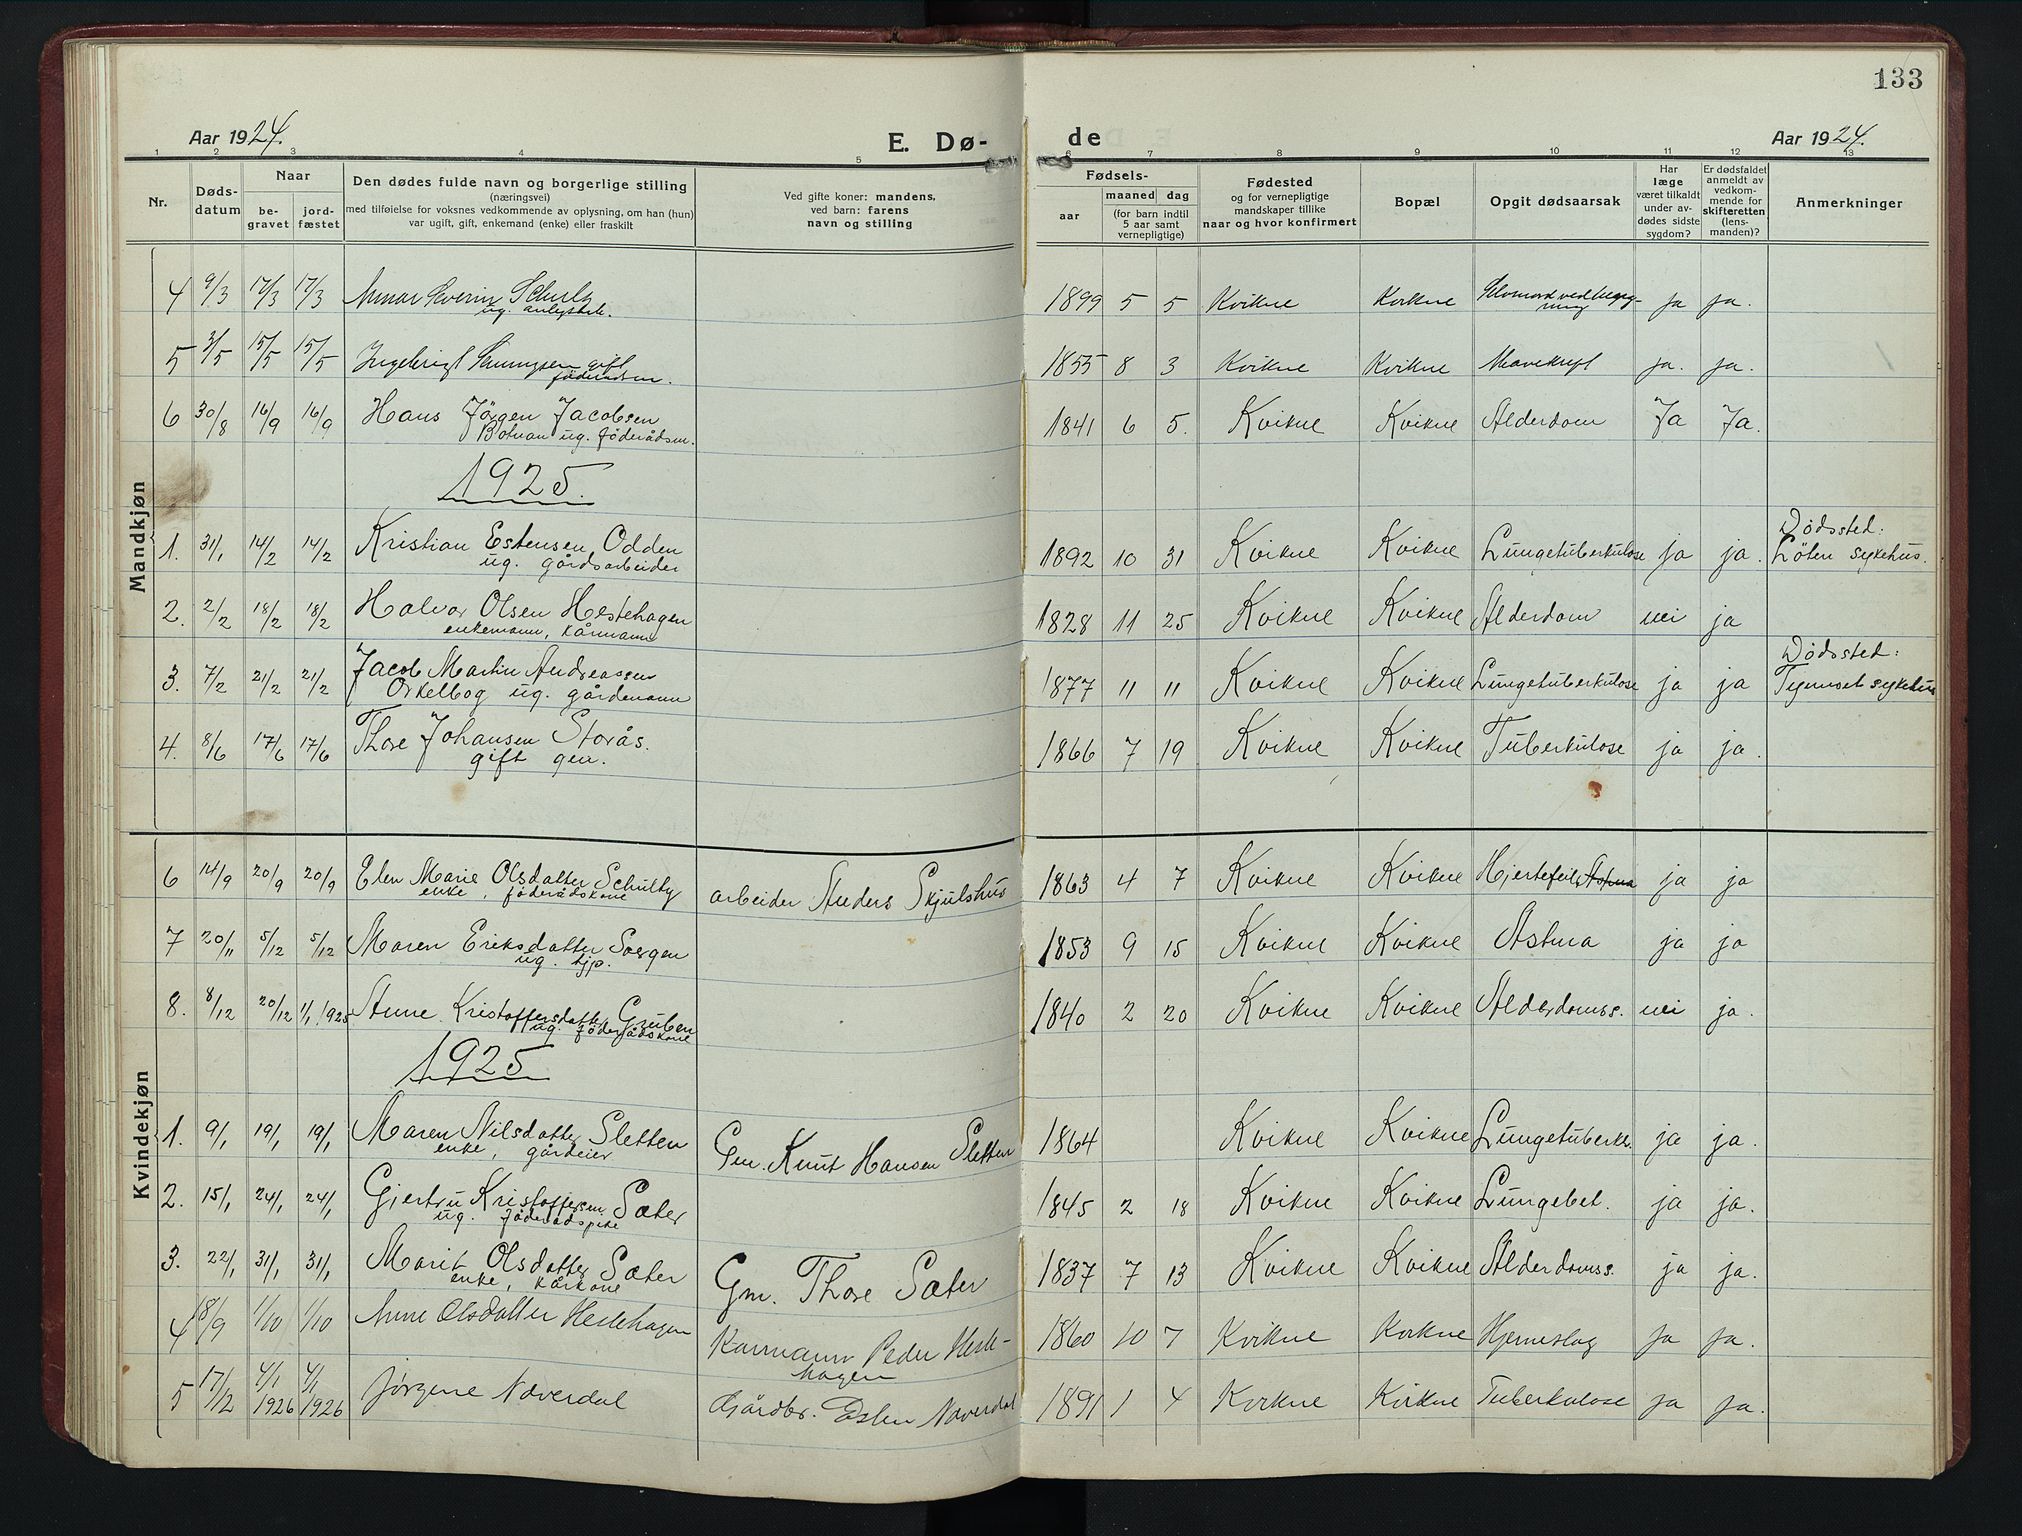 133
Aar 1924.
E. Dø-
de
Aar 1924.
1 2 3 4 5 6 7 8 9 10 11 12 13
Nr.
Døds-
datum
Naar
be-
gravet
jord-
fæstet
Den dødes fulde navn og borgerlige stilling
(næringsvei)
med tilføielse for voksnes vedkommende av oplysning, om han (hun)
var ugift, gift, enkemand (enke) eller fraskilt
Ved gifte koner: mandens,
ved barn: farens
navn og stilling
Fødsels-
aar
maaned dag
(for barn indtil
5 aar samt
vernepligtige)
Fødested
og for vernepligtige
mandskaper tillike
naar og hvor konfirmert
Bopæl
Opgit dødsaarsak
Har
læge
været tilkaldt
under av-
dødes sidste
sygdom?
Er dødsfaldet
anmeldt av
vedkom-
mende for
skifteretten
(lens-
manden)?
Anmerkninger
Mandkjøn
4 9/3 17/3 17/3 Severin Schulz 1899 5 5 Kvikne Kvikne ja ja.
ug.
5 3/5 15/5 15/5 Ingebrigt gift 1855 8 3 Kvikne Kvikne Mavekreft ja. ja.
föderadsm.
6 30/8 16/9 16/9 Hans Jörgen Jacobsen 1841 6 5. Kvikne Kvikne Alderdom Ja Ja.
ug. föderådsm.
1925.
Dødssted:
1. 31/1 14/2 14/2 Kristian Estensen Odden 1892 10 31 Kvikne Kvikne Lungetuberkulose ja ja. Löten sykehus.
ug. gårdsarbeider
2. 2/2 18/2 18/2 Halvor Olsen Hestehagen 1828 11 25 Kvikne Kvikne Alderdom nei ja
enkemann, kårmann
Dødssted:
3. 7/2 21/2 21/2 Jacob Martin Andreassen 1877 11 11 Kvikne Kvikne Lungetuberkulose ja ja Tynset sykehus
Orkelbog ug. gårdmann
4. 8/6 17/6 17/6 Thore Johansen Storås. 1866 7 19 Kvikne Kvikne Tuberkulose ja ja.
gift gm.
Kvindekjøn
6 14/9 20/9 20/9 Elen Marie Olsdatter Schultz arbeider Anders Skjulshus 1863 4 7 Kvikne Kvikne Hjertefeil, Astma ja ja
enke, föderådskone
7 20/11 5/12 5/12 Maren Eriksdatter 1853 9 15 Kvikne Kvikne Astma ja ja
ug. tjp.
8. 8/12 20/12 1/1 1925 Anne Kristoffersdatter Gruben 1840 2 20 Kvikne Kvikne Alderdomss. nei ja.
ug. föderådskone
1925
1. 9/1 19/1 19/1 Maren Nilsdatter Sletten Gm. Knut Hansen Sletten 1864 Kvikne Kvikne Lungetuberk. ja ja.
enke, gårdeier
2. 15/1 24/1 24/1 Gjertru Kristoffersen Sæter 1845 2 18 Kvikne Kvikne Lungebet. ja ja.
ug. föderådspike
3. 22/1 31/1 31/1 Marit Olsdatter Sæter Gm. Thore Sæter 1837 7 13 Kvikne Kvikne Alderdomss. ja ja.
enke, kårkone
4 18/9 1/10 1/10 Anne Olsdatter Hestehagen Karmann Peder Heste- 1860 10 7 Kvikne Kvikne Hjerneslag ja ja.
hagen
5 17/12 4/1 1926 4/1 1926 Jörgine Næverdal Gårdbr. Esten Næverdal 1891 1 4 Kvikne Kvikne Tuberkulose ja ja.